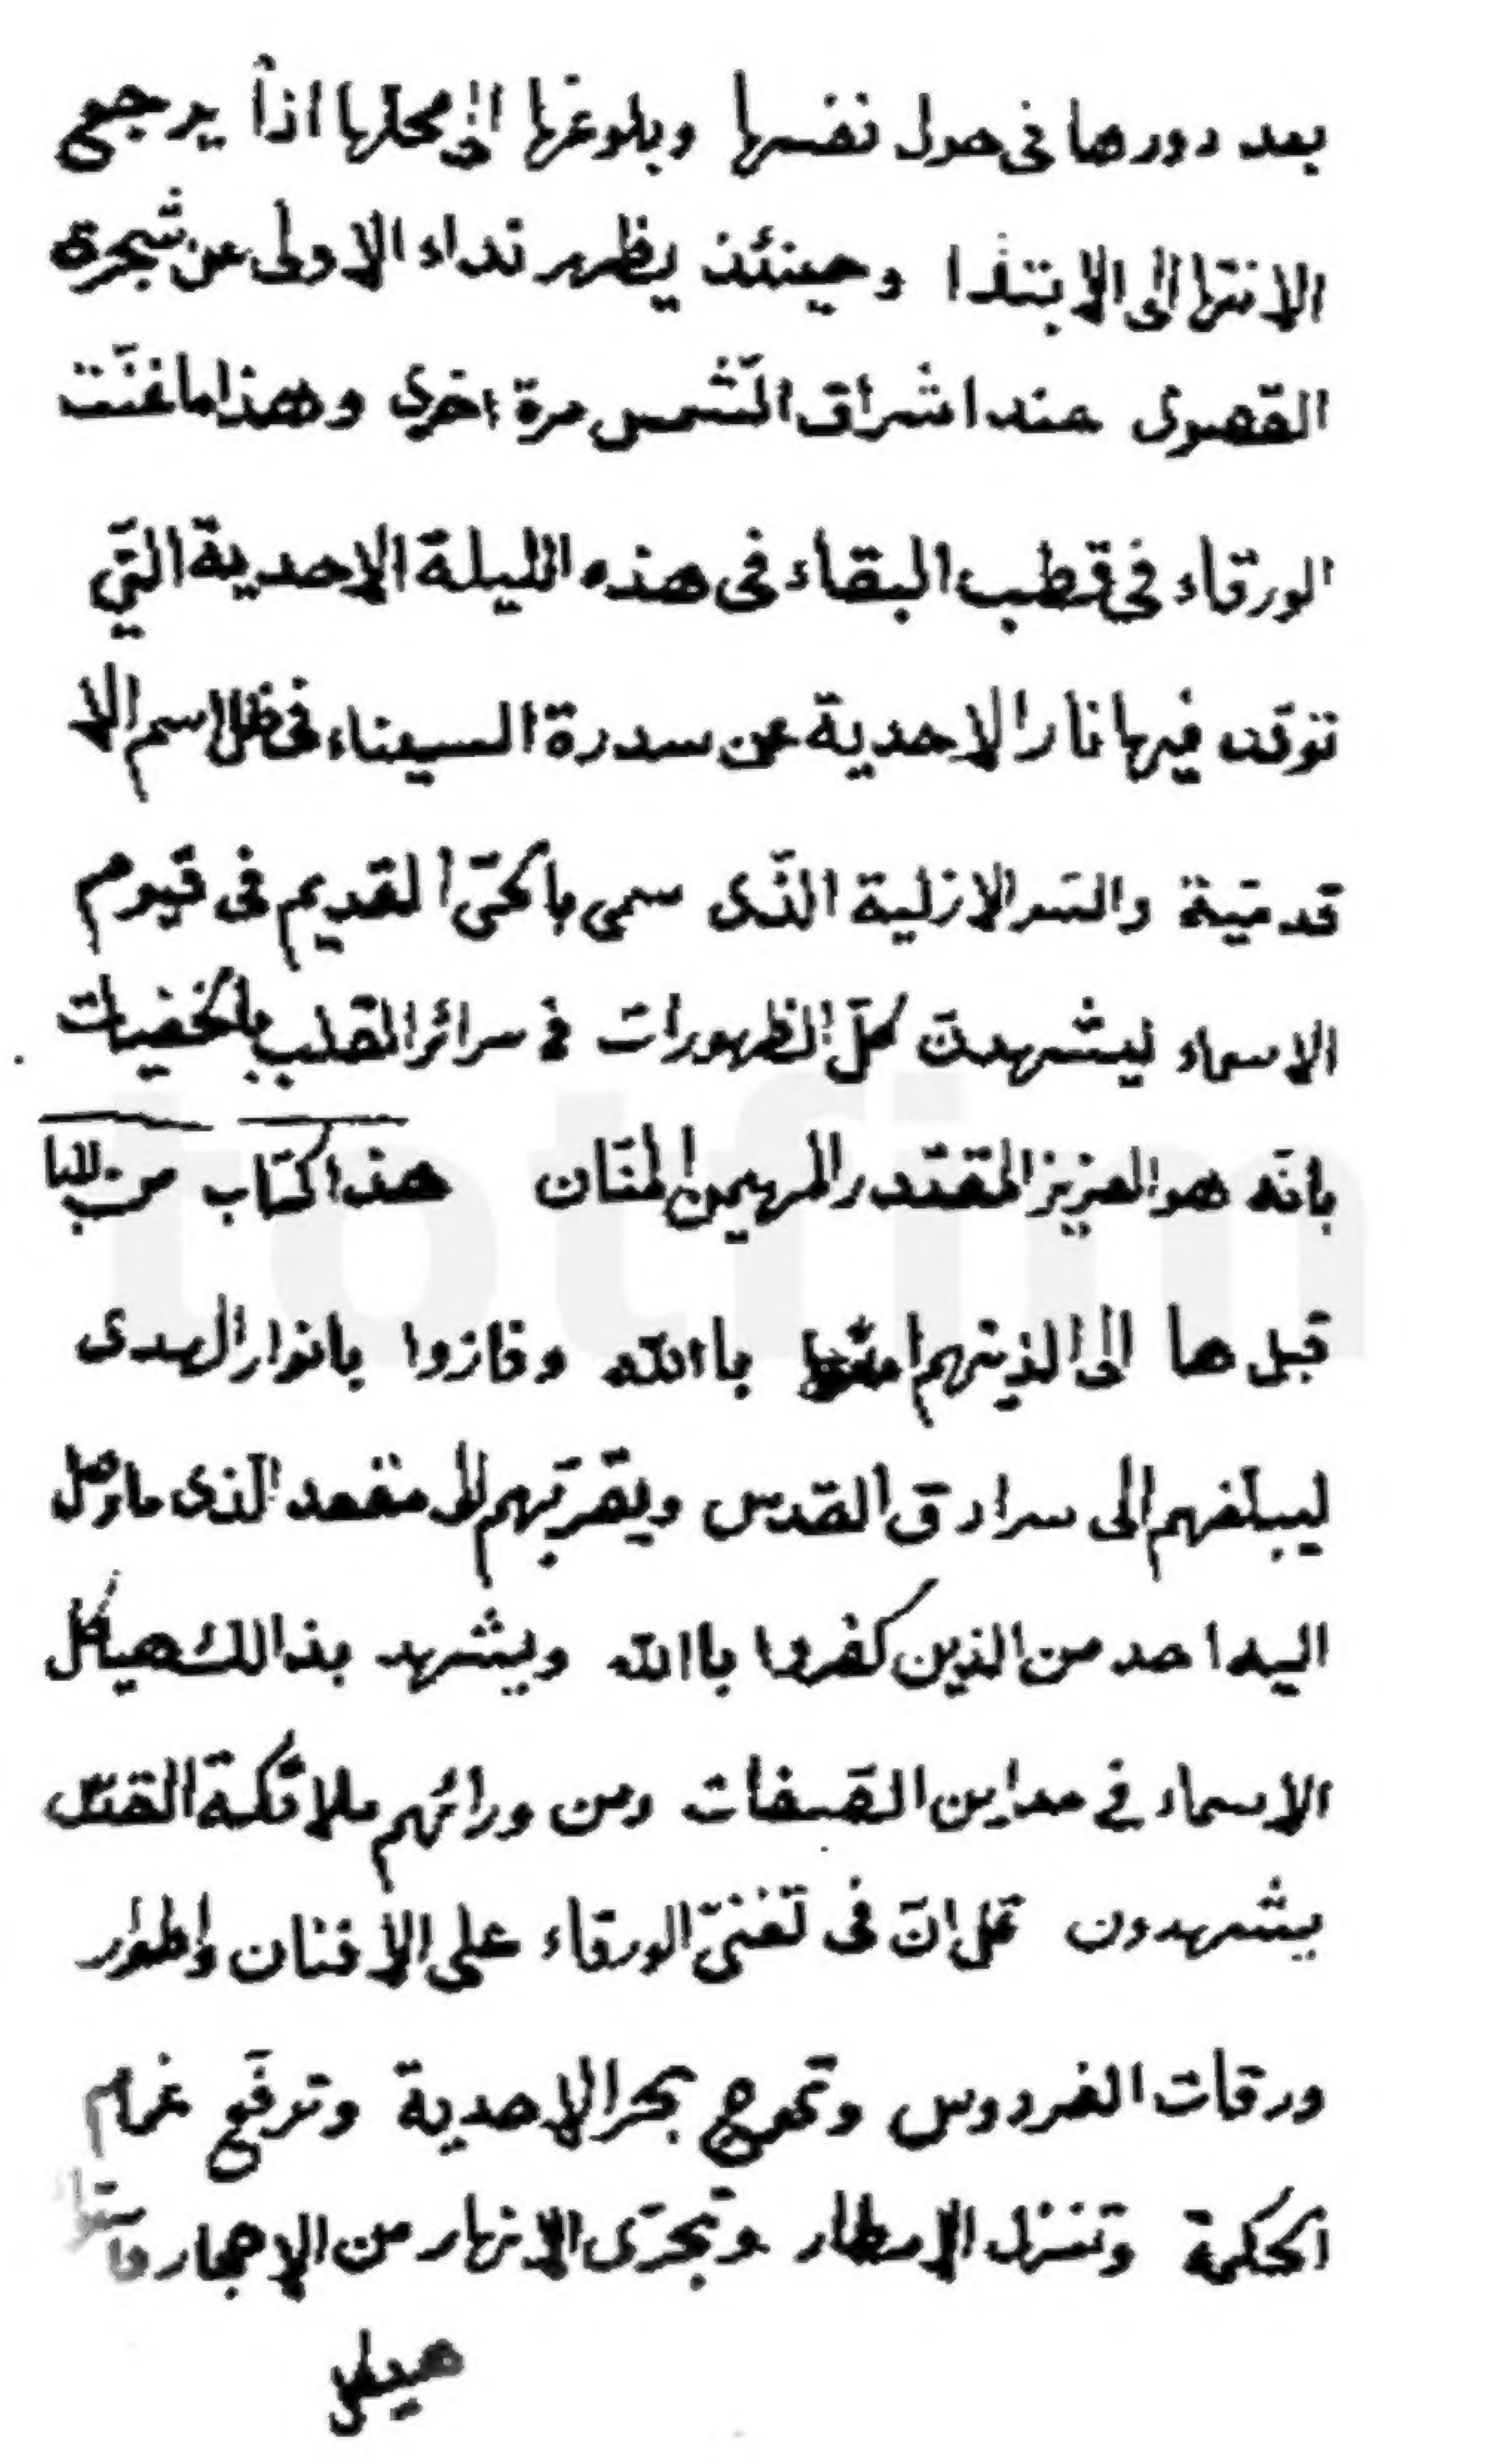 بعد دورها فى حول نفسها وبلوغها الى محلها اذاً يرجع
الانتها الى الابتدا وحينئذ يظهر نداء الاولى عن شجرة
القصوى عند اشراق الشّمس مرة اخرى وهذا ما غنّت
الورقاء فى قطب البقاء فى هذه الليلة الاحدية التّي
توقد فيها نار الاحدية عن سدرة السيناء فى ظل اسم الا
قدميّة والسر الازلية الذّى سمى بالحىّ القديم فى قيوم
الاسماء ليشهدنّ كلّ الظهورات فى سرائر القلب بالخفيات
بانّه هو العزيز المقتدر المهيمن المنّان هذا كتاب من
قبل ها الى الذينهم باالله وفازوا بانوار الهدى
ليبلغهم الى سرادق القدس ويقرّبهم الى مقعد الّذى ما
اليه احد من الذين كفروا باالله ويشهد بذالك هياكل
الاسماء في مداين الصّفات ومن ورائهم ملائكة
يشهدون قل انّ فى تغنىّ الورقاء على الافنان واطوار
ورقات الفردوس وتموج بحر الاحدية وترفّع غمام
الحكمة وتنزل الامطار وتجرى الانهار من الاحجار
totfim